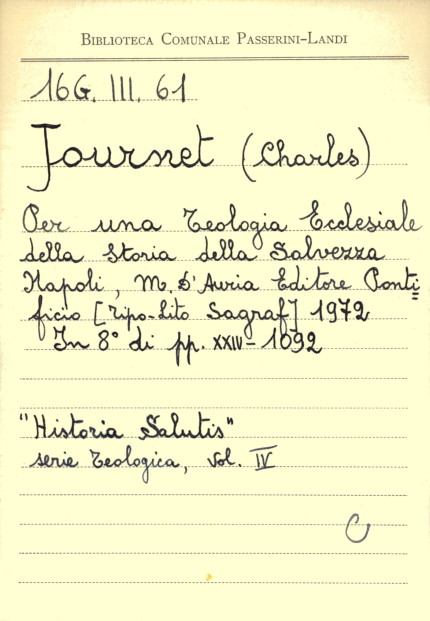 Biblioteca Comunale Passerini-Landi
16G. III. 61
Journet (Charles)
Per una Teologia Ecclesiale
della Storia della Salvezza
Napoli, M. D'Auria Editore Ponti=
ficio [Tipo-Lito Sagraf] 1972
In 8° di pp. XXIV-1092
"Historia Salutis"
serie Teologica, vol. IV
C